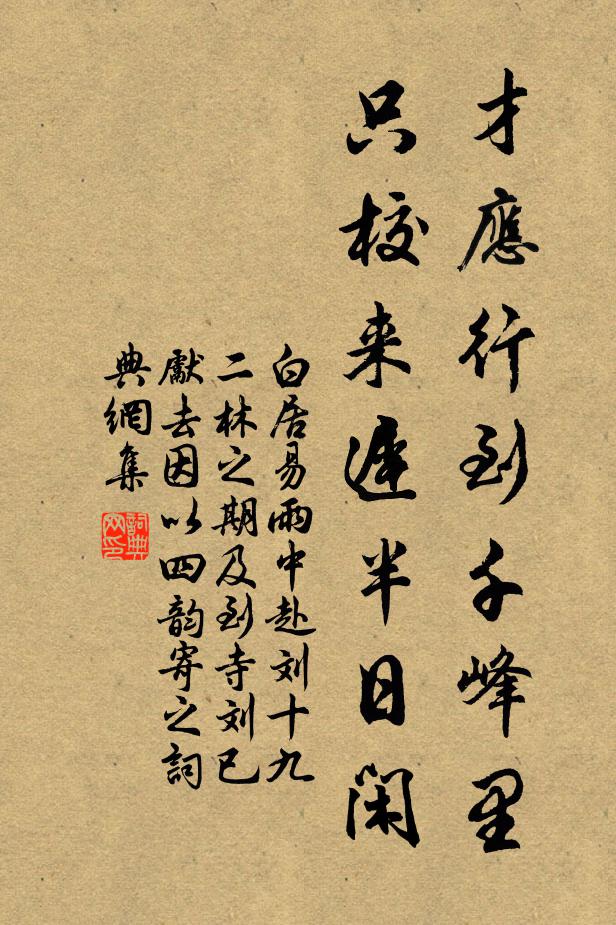 才應行到千峰里
只校来遲半日閑
白居易雨中赴刘十九
二林之期及到寺刘已
獻去因以四韵寄之詞
典網集
詞典
网印